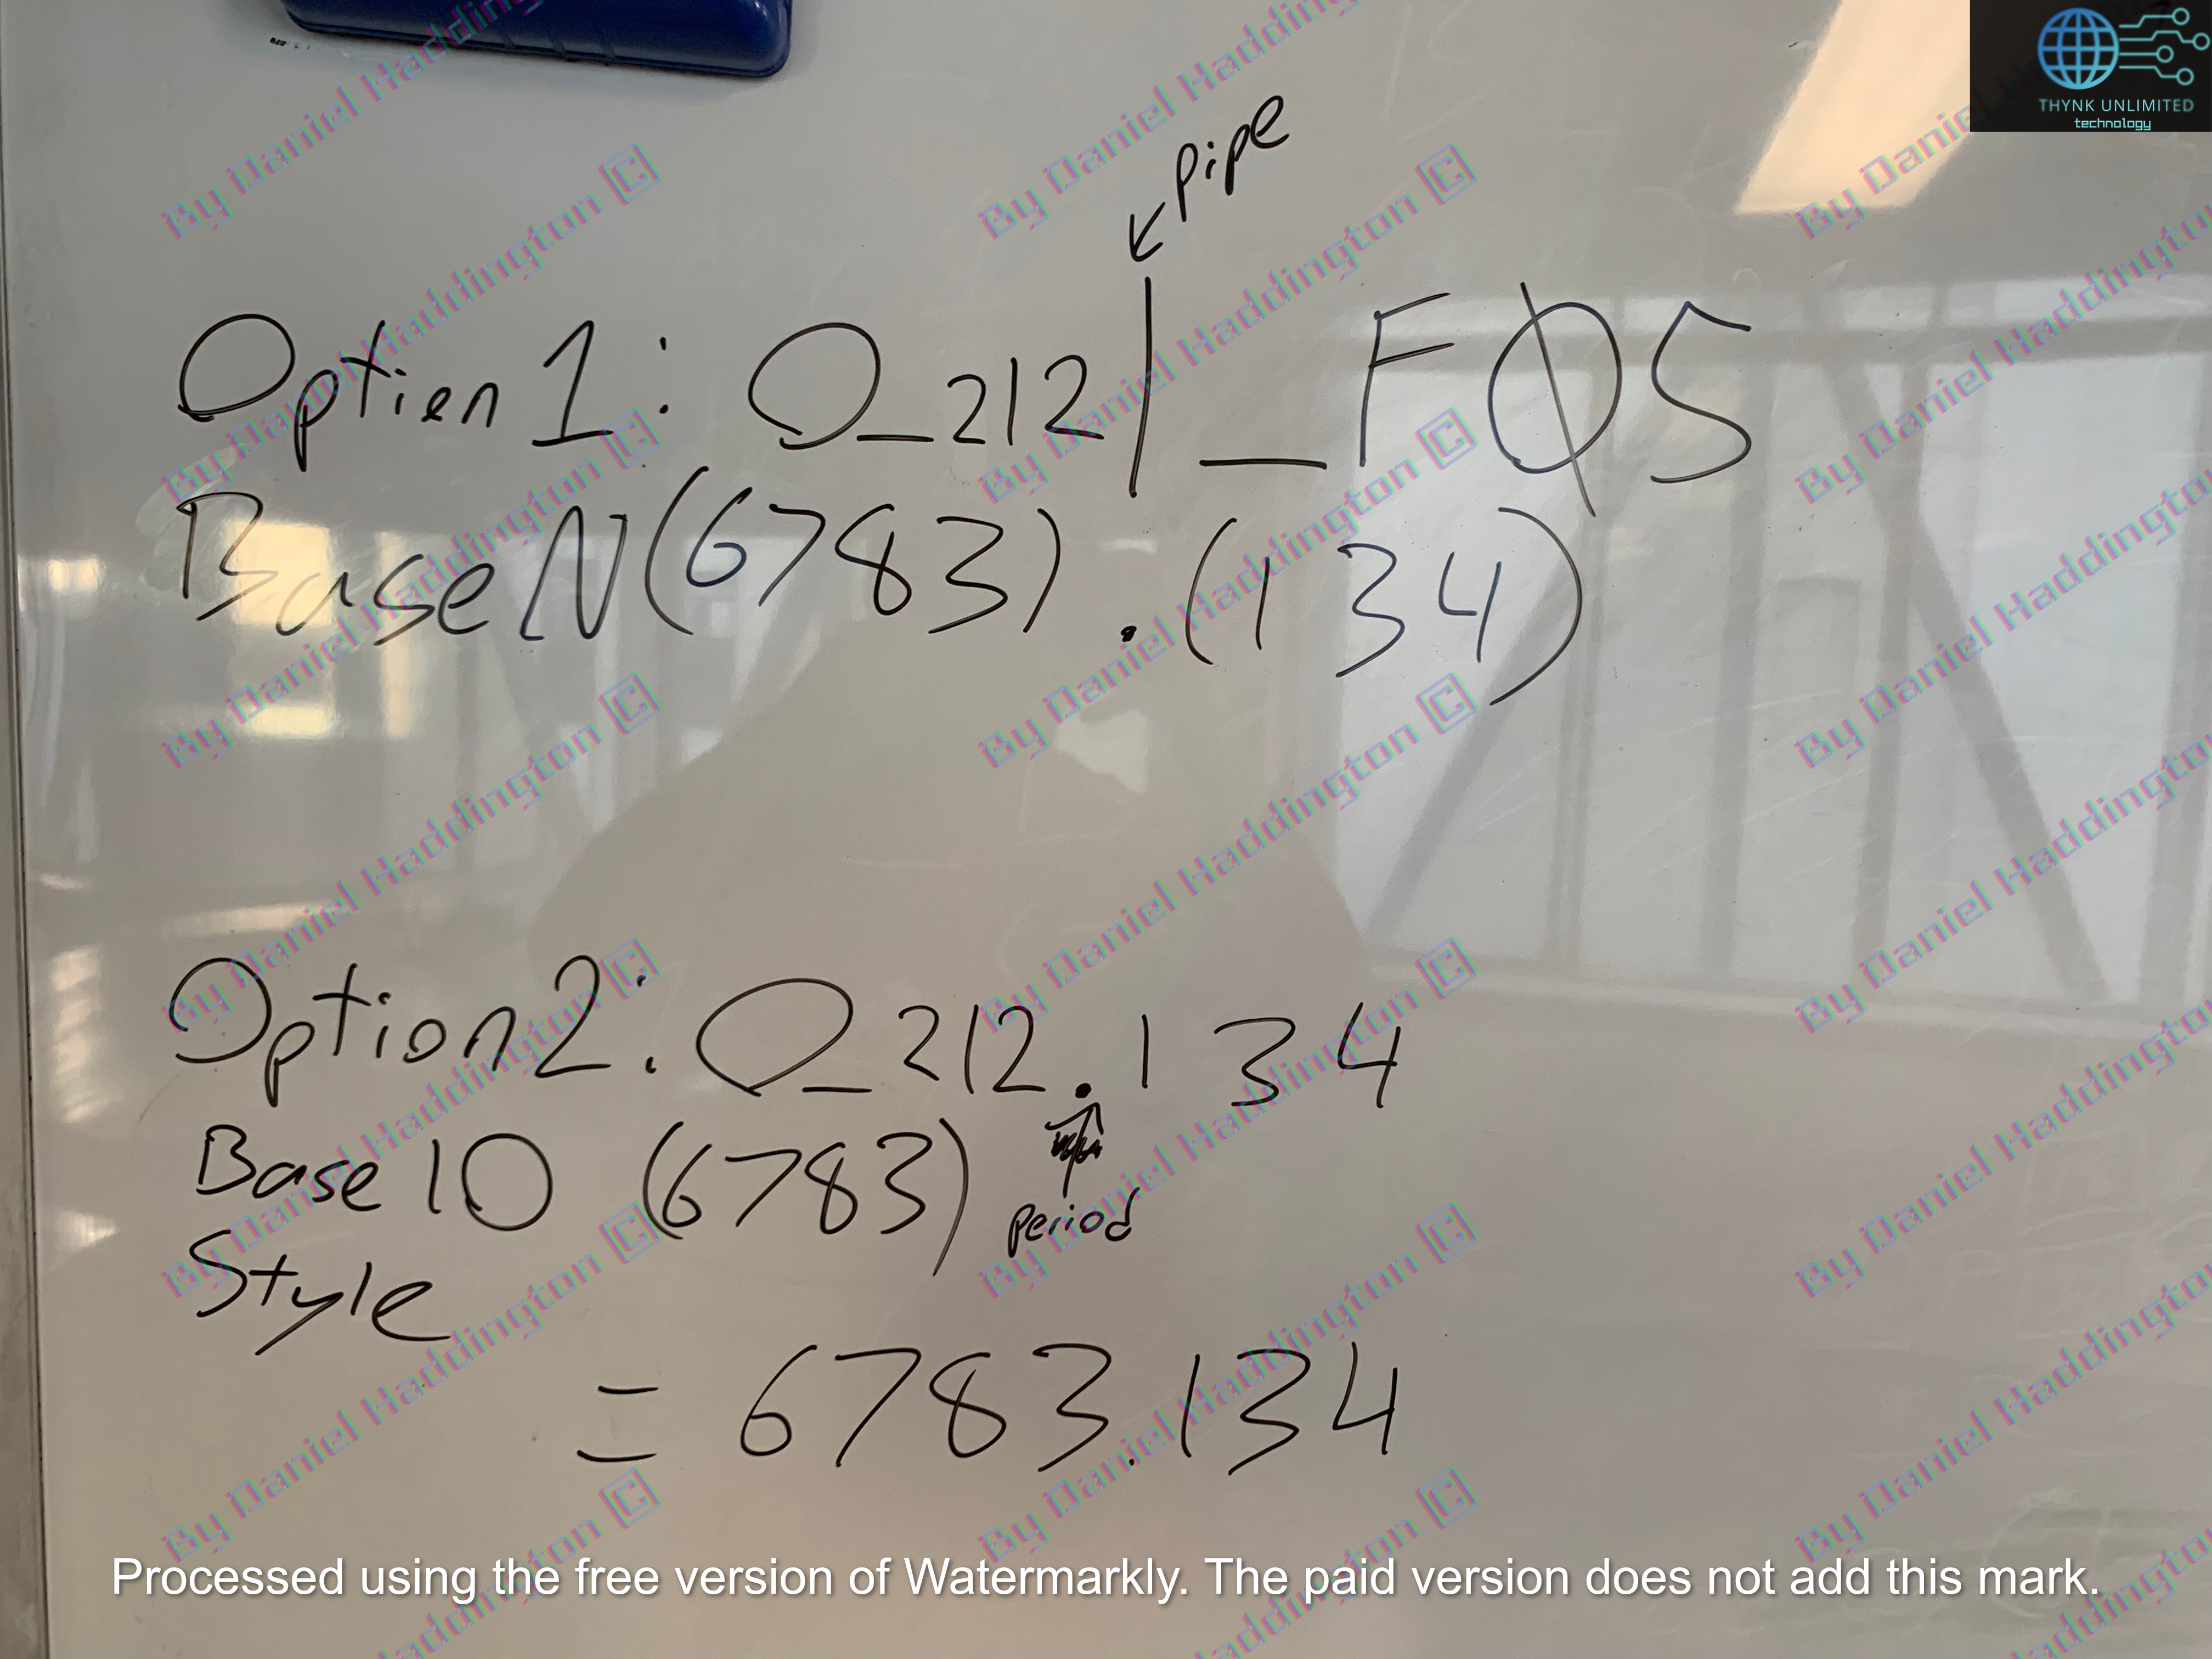 THYNK UNLIMITED
technology
pipe
Option 1: O_212|_FØ5
Base N (6783).(134)
Option 2: O_212.134
Base 10 (6783)
period
Style
= 6783.134
By Daniel Haddington ©
Processed using the free version of Watermarkly. The paid version does not add this mark.